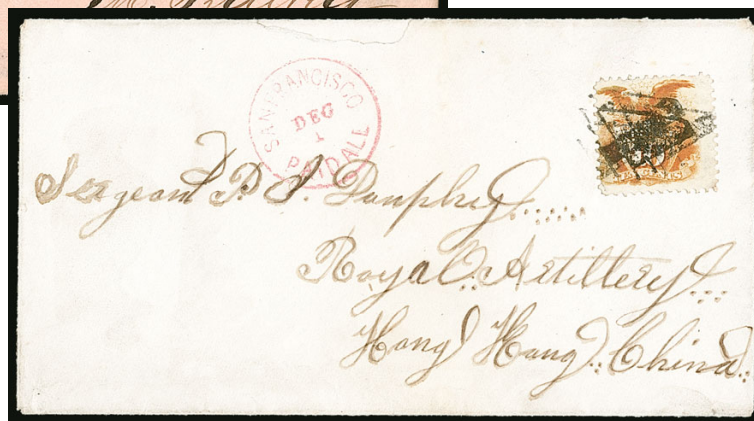 SAN FRANCISCO
DEC
1
PAID ALL
Sergeant P. S. Pumphry
Royal Artillery
Hong Hong. China.